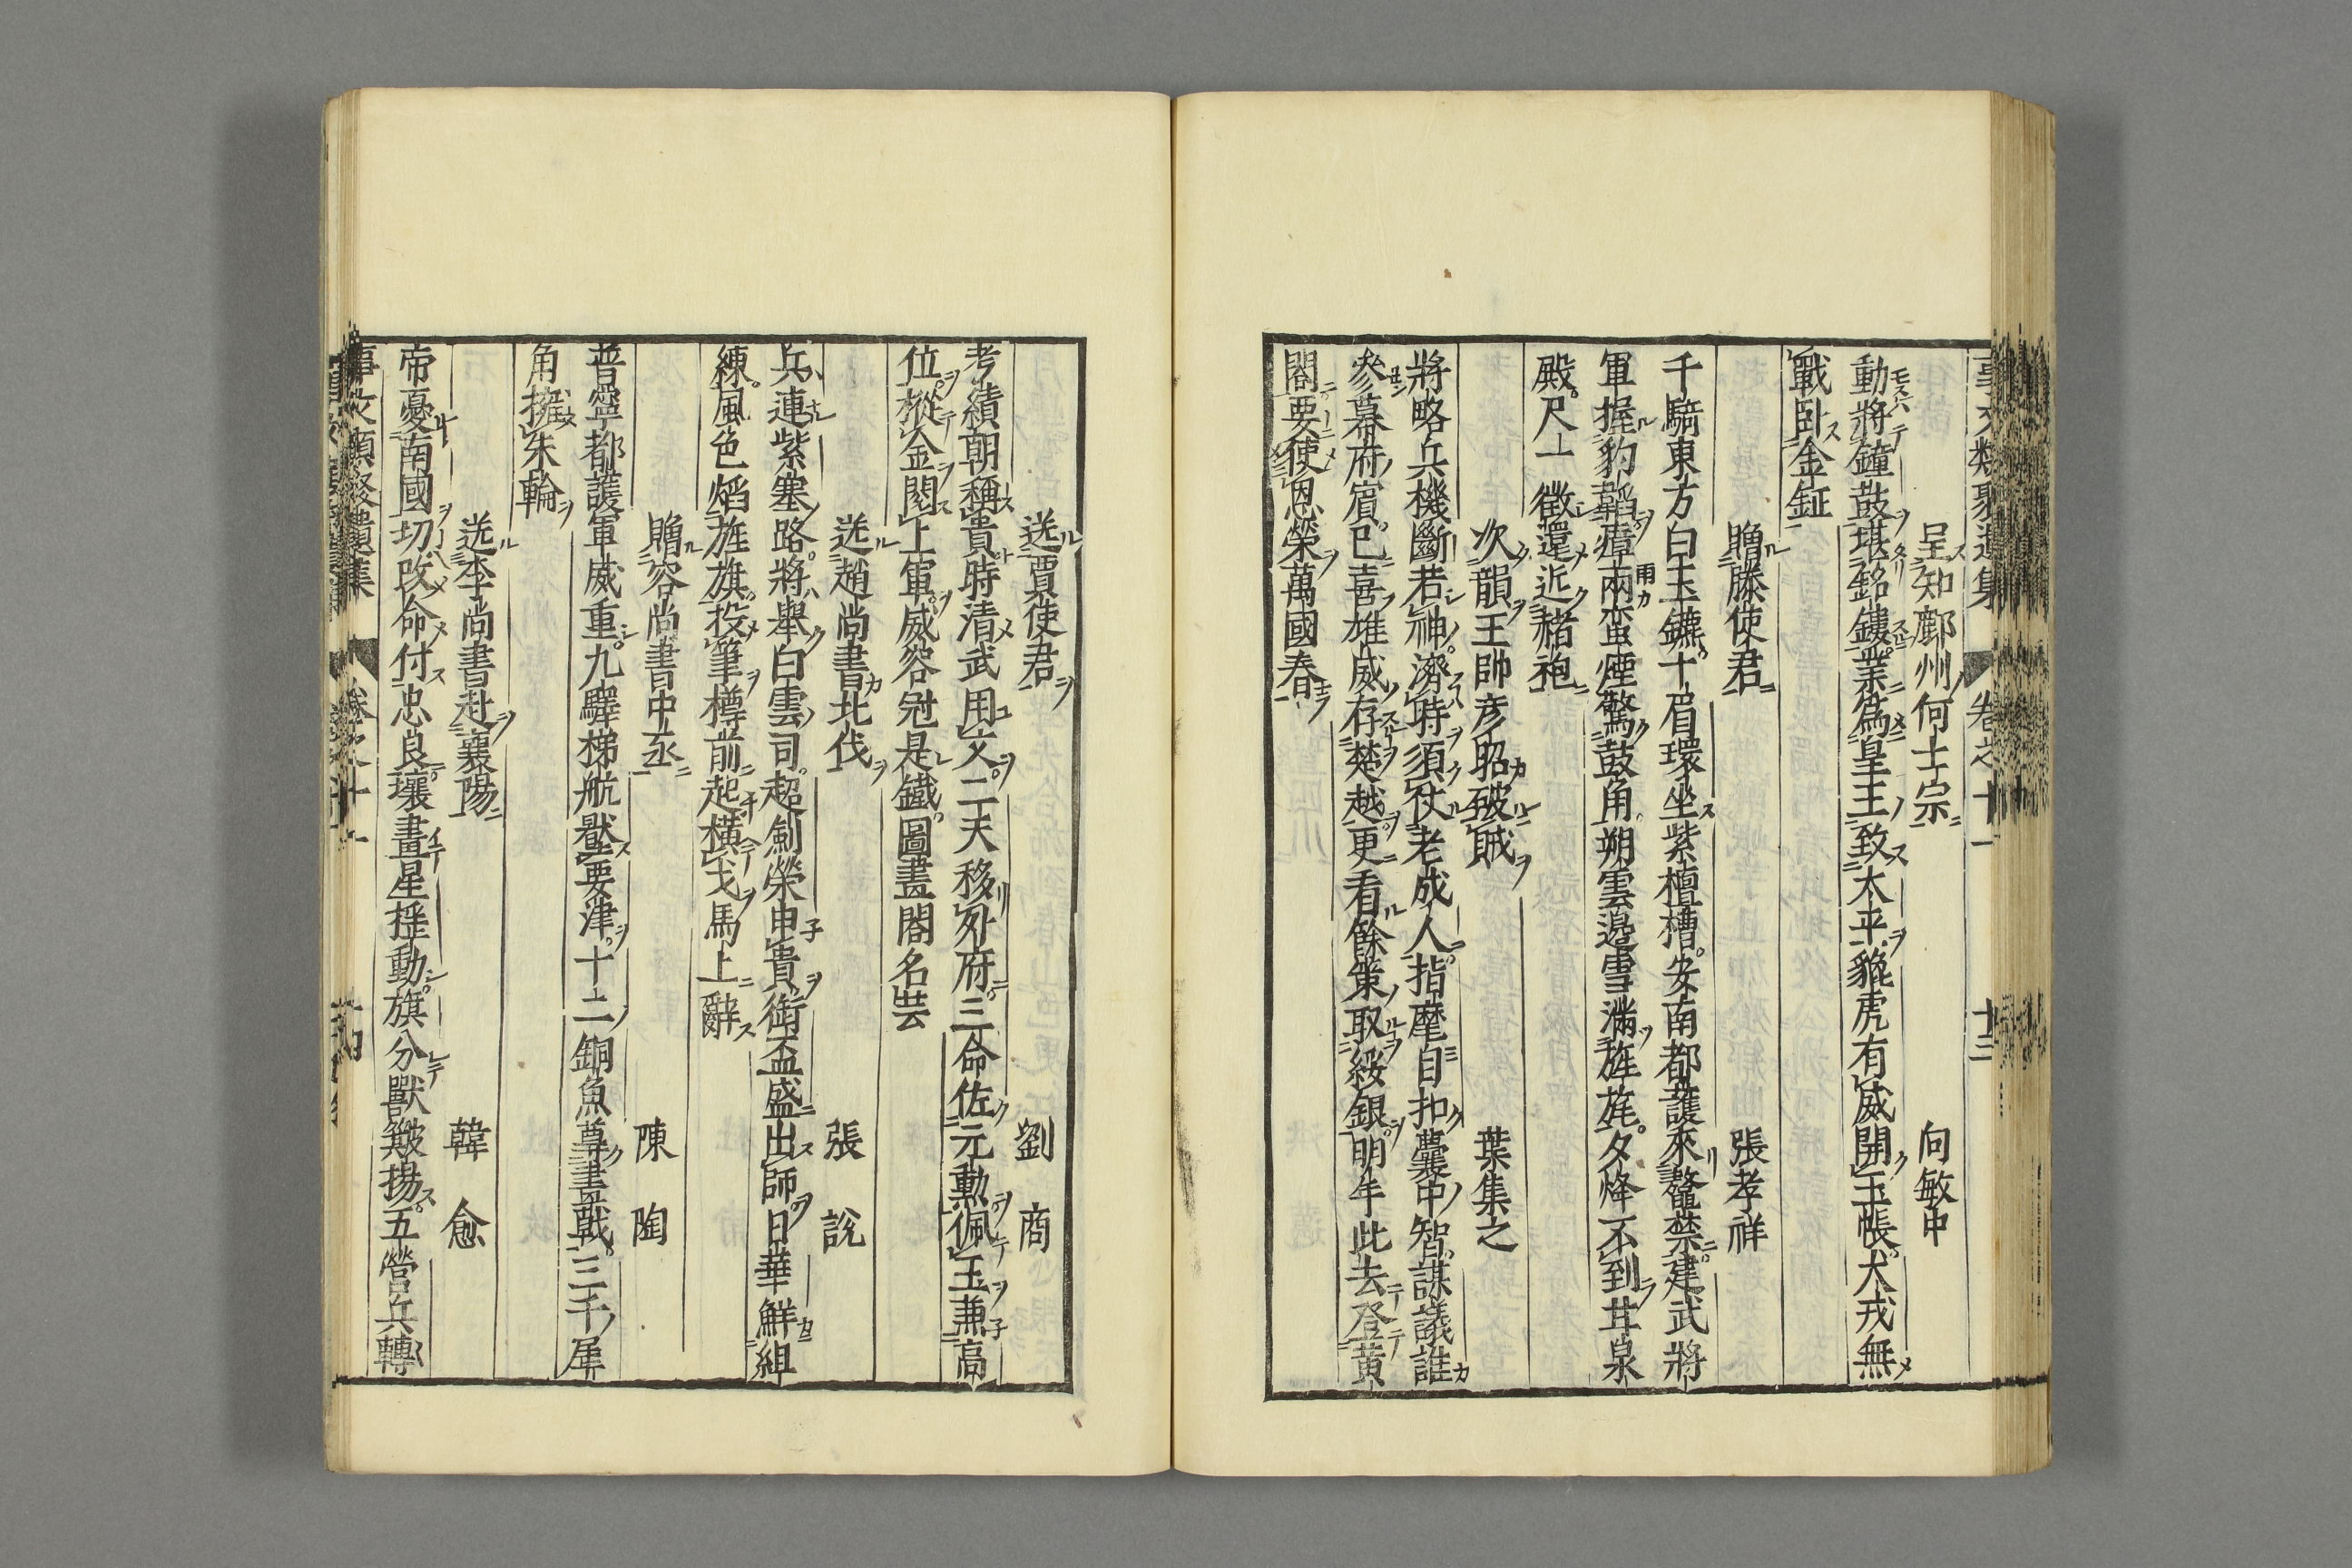 事文類聚遺集 卷之十一 十三
呈知鄜州何士宗 向敏中
動將鐘鼓堪銘鏤業為皇王致太平貔虎有威開玉帳犬戎無
戰臥金鉦
贈滕使君 張孝祥
千騎東方白玉鑣十眉環坐紫檀槽安南都護來鼇禁建武將
軍握豹韜瘴雨蛮煙驚鼓角朔雲邊雪滿旌旄夕烽不到甘泉
殿尺一徵還近赭袍
次韻王帥彦昭破賊 葉集之
將略兵機斷若神濟時須仗老成人指麾自扣囊中智謀議誰
參幕府賓已喜雄威存楚越更看餘策取綏銀明年此去登黄
閣要使恩榮萬國春
送賈使君 劉商
考績朝稱貴時清武用文二天移外府三命佐元勳佩玉兼高
位摐金閱上軍威容冠是鐵圖畫閣名芸
送趙尚書北伐 張說
兵連紫塞路將舉白雲司超劍榮申貴銜盃盛出師日華鮮組
練風色焰旌旗投筆樽前起橫戈馬上辭
贈容尚書中丞 陳陶
普寧都護軍威重九驛梯航壓要津十二銅魚尊畫戟三千犀
角擁朱輪
送李尚書赴襄陽 韓愈
帝憂南國切改命付忠良壤畫星搖動旗分獸簸揚五營兵轉
事文類聚遺集 卷之十一 十四